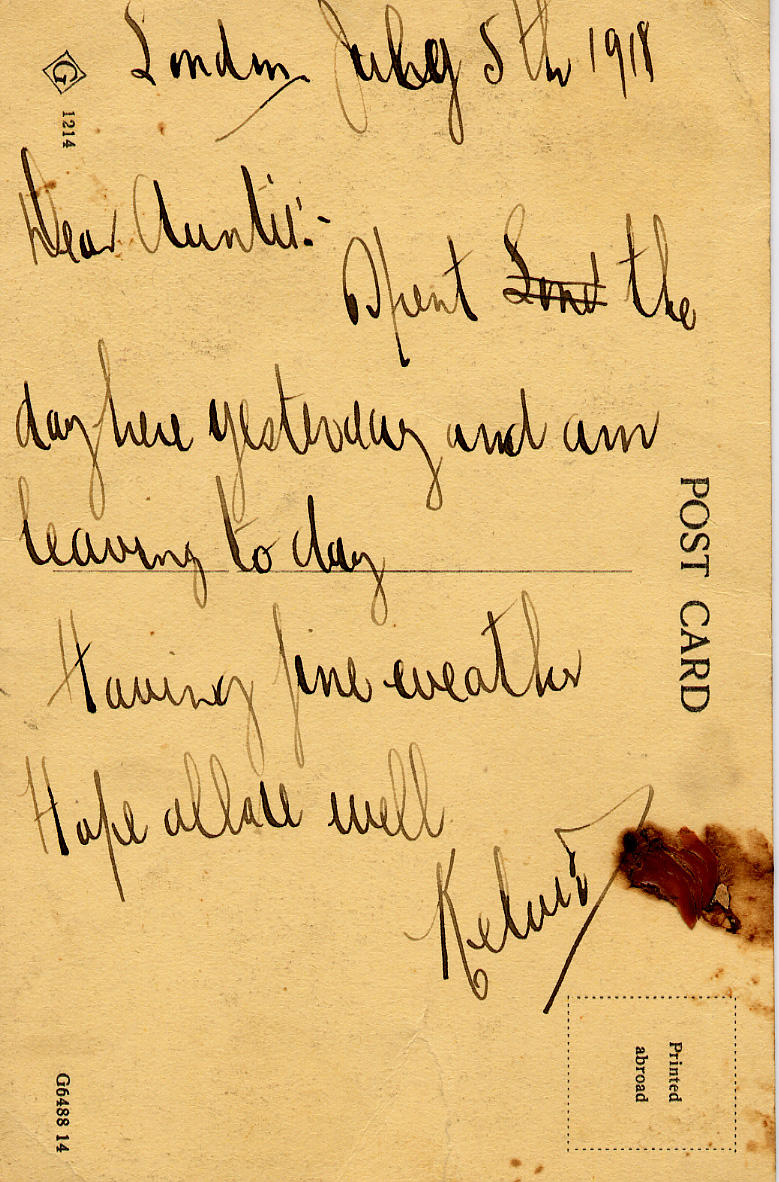 London July 5th 1918
G
1214
Dear Auntie:-
Spent Lond the
day here yesterday and am
leaving to day
Having fine weather
Hope all are well
Kelvin
POST CARD
Printed
abroad
G6488 14